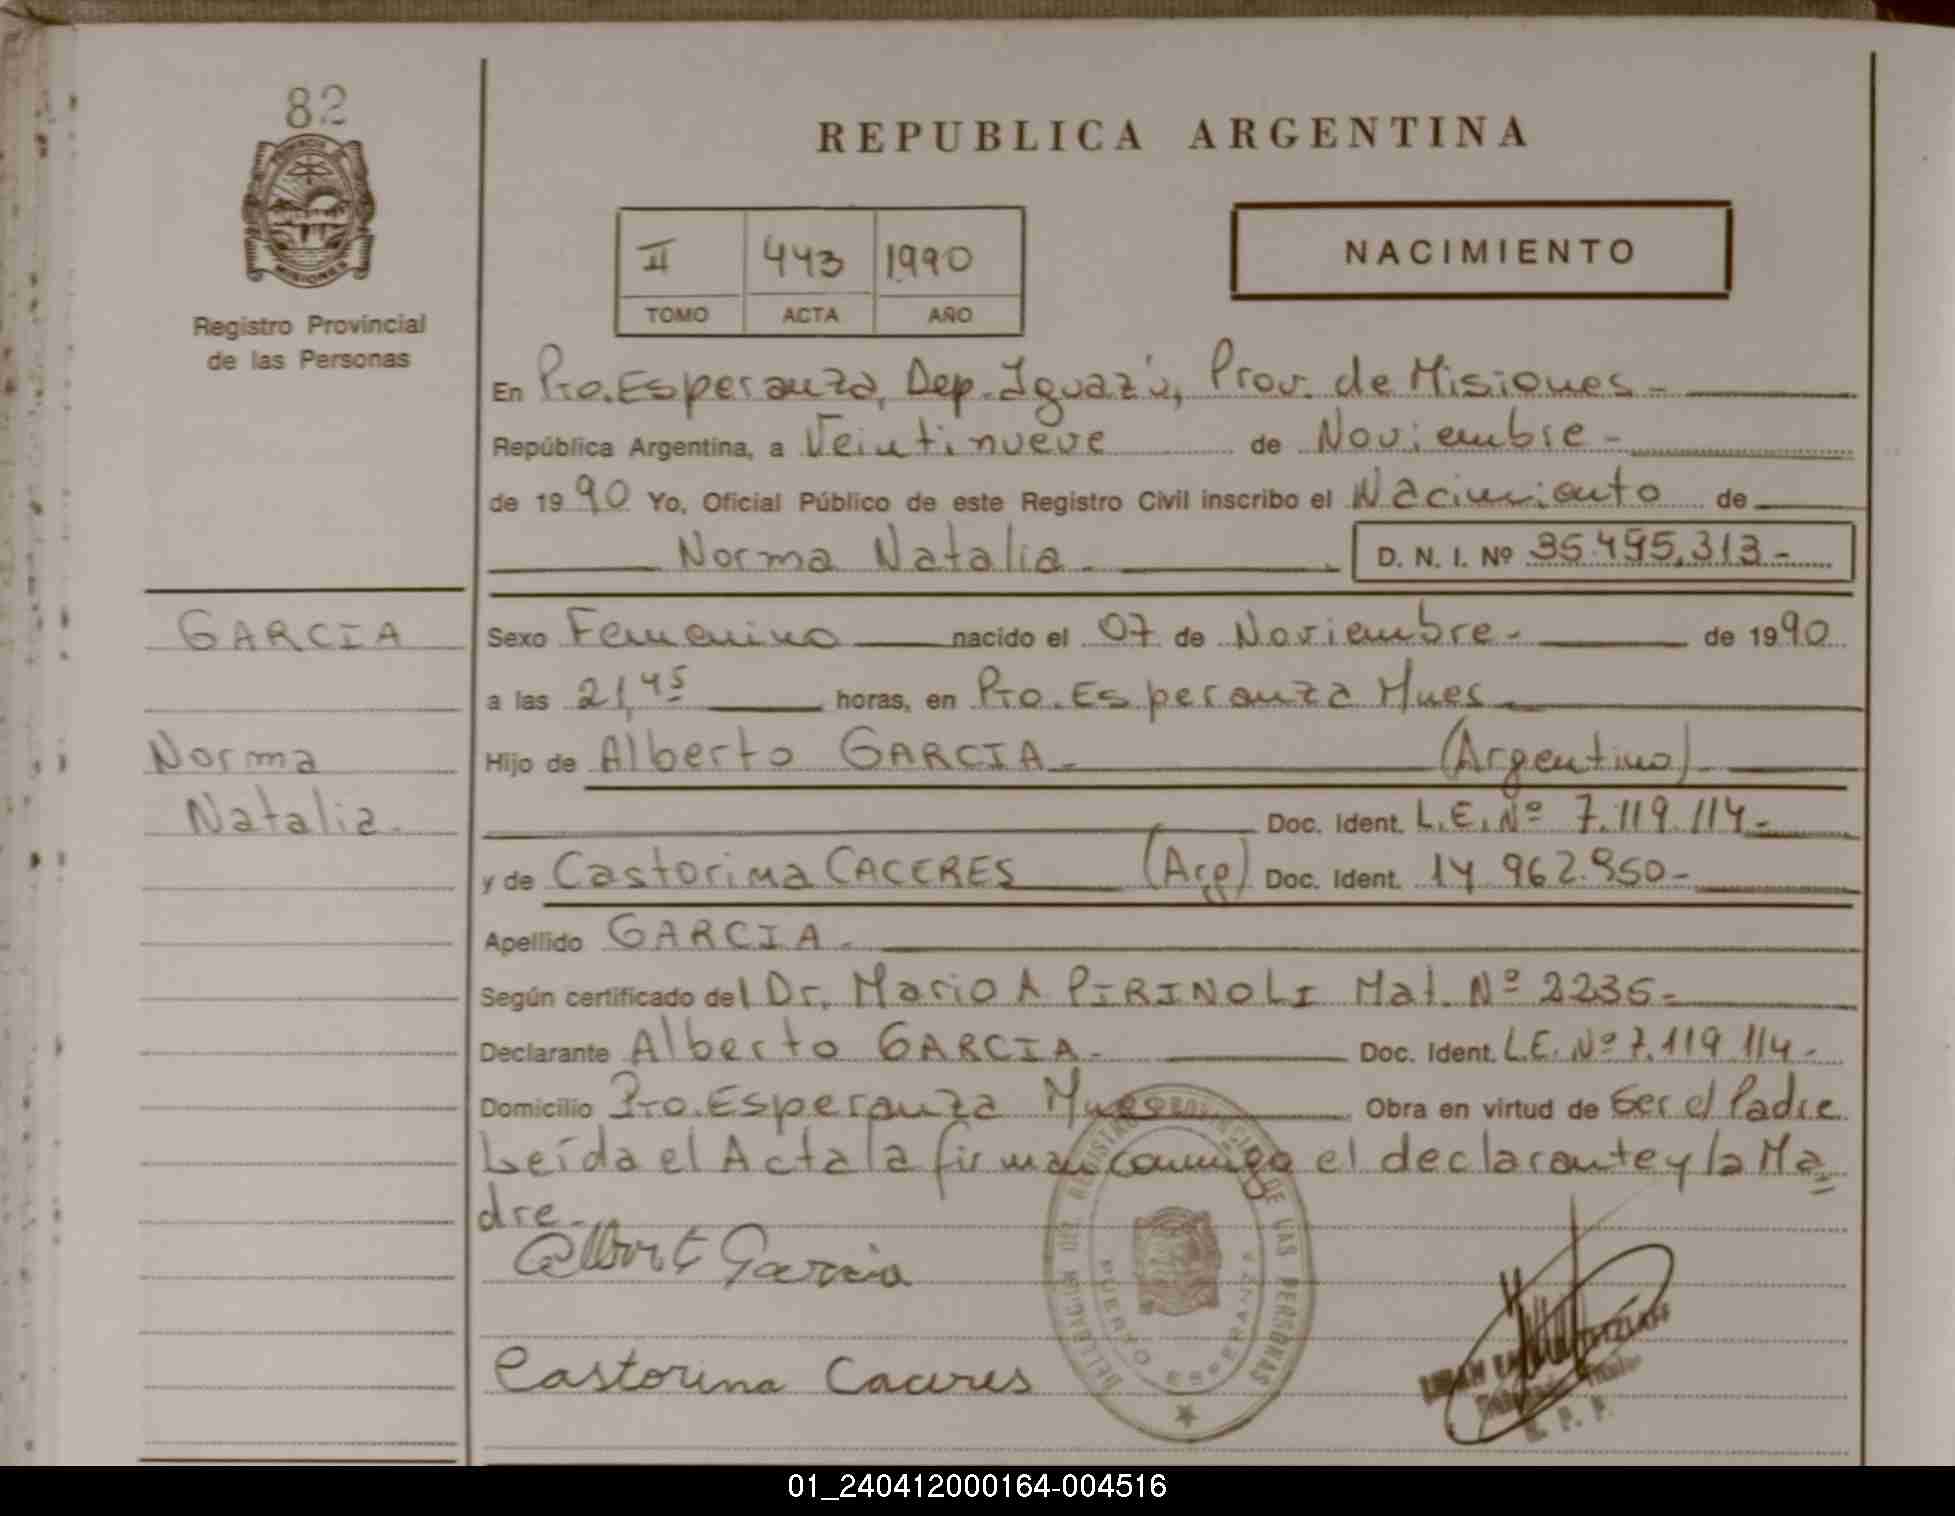 82
PROVINCIA
MISIONES
Registro Provincial
de las Personas
REPUBLICA ARGENTINA
II 443 1990
TOMO ACTA AÑO
NACIMIENTO
En Pto. Esperanza, Dep. Iguazú, Prov. de Misiones-
República Argentina, a Veintinueve de Noviembre-
de 1990 Yo, Oficial Público de este Registro Civil inscribo el Nacimiento de
Norma Natalia- D. N. I. Nº 35.495.313-
GARCIA
Norma
Natalia-
Sexo Femenino nacido el 07 de Noviembre- de 1990
a las 21,45 horas, en Pto. Esperanza Mnes
Hijo de Alberto GARCIA- (Argentino)
Doc. Ident. L.E. Nº 7.119.114-
y de Castorina CACERES (Arg) Doc. Ident. 14.962.950-
Apellido GARCIA-
Según certificado del Dr. Mario A PIRINOLI Mat. Nº 2235-
Declarante Alberto GARCIA- Doc. Ident. L.E. Nº 7.119.114-
Domicilio Pto. Esperanza Mnes Obra en virtud de Ser el Padre
Leída el Acta la firman conmigo el declarante y la Ma=
dre-
Albert Garcia
Castorina Caceres
DELEGACION DEL REGISTRO PROVINCIAL DE LAS PERSONAS
PUERTO ESPERANZA
R. P. P.
01_240412000164-004516